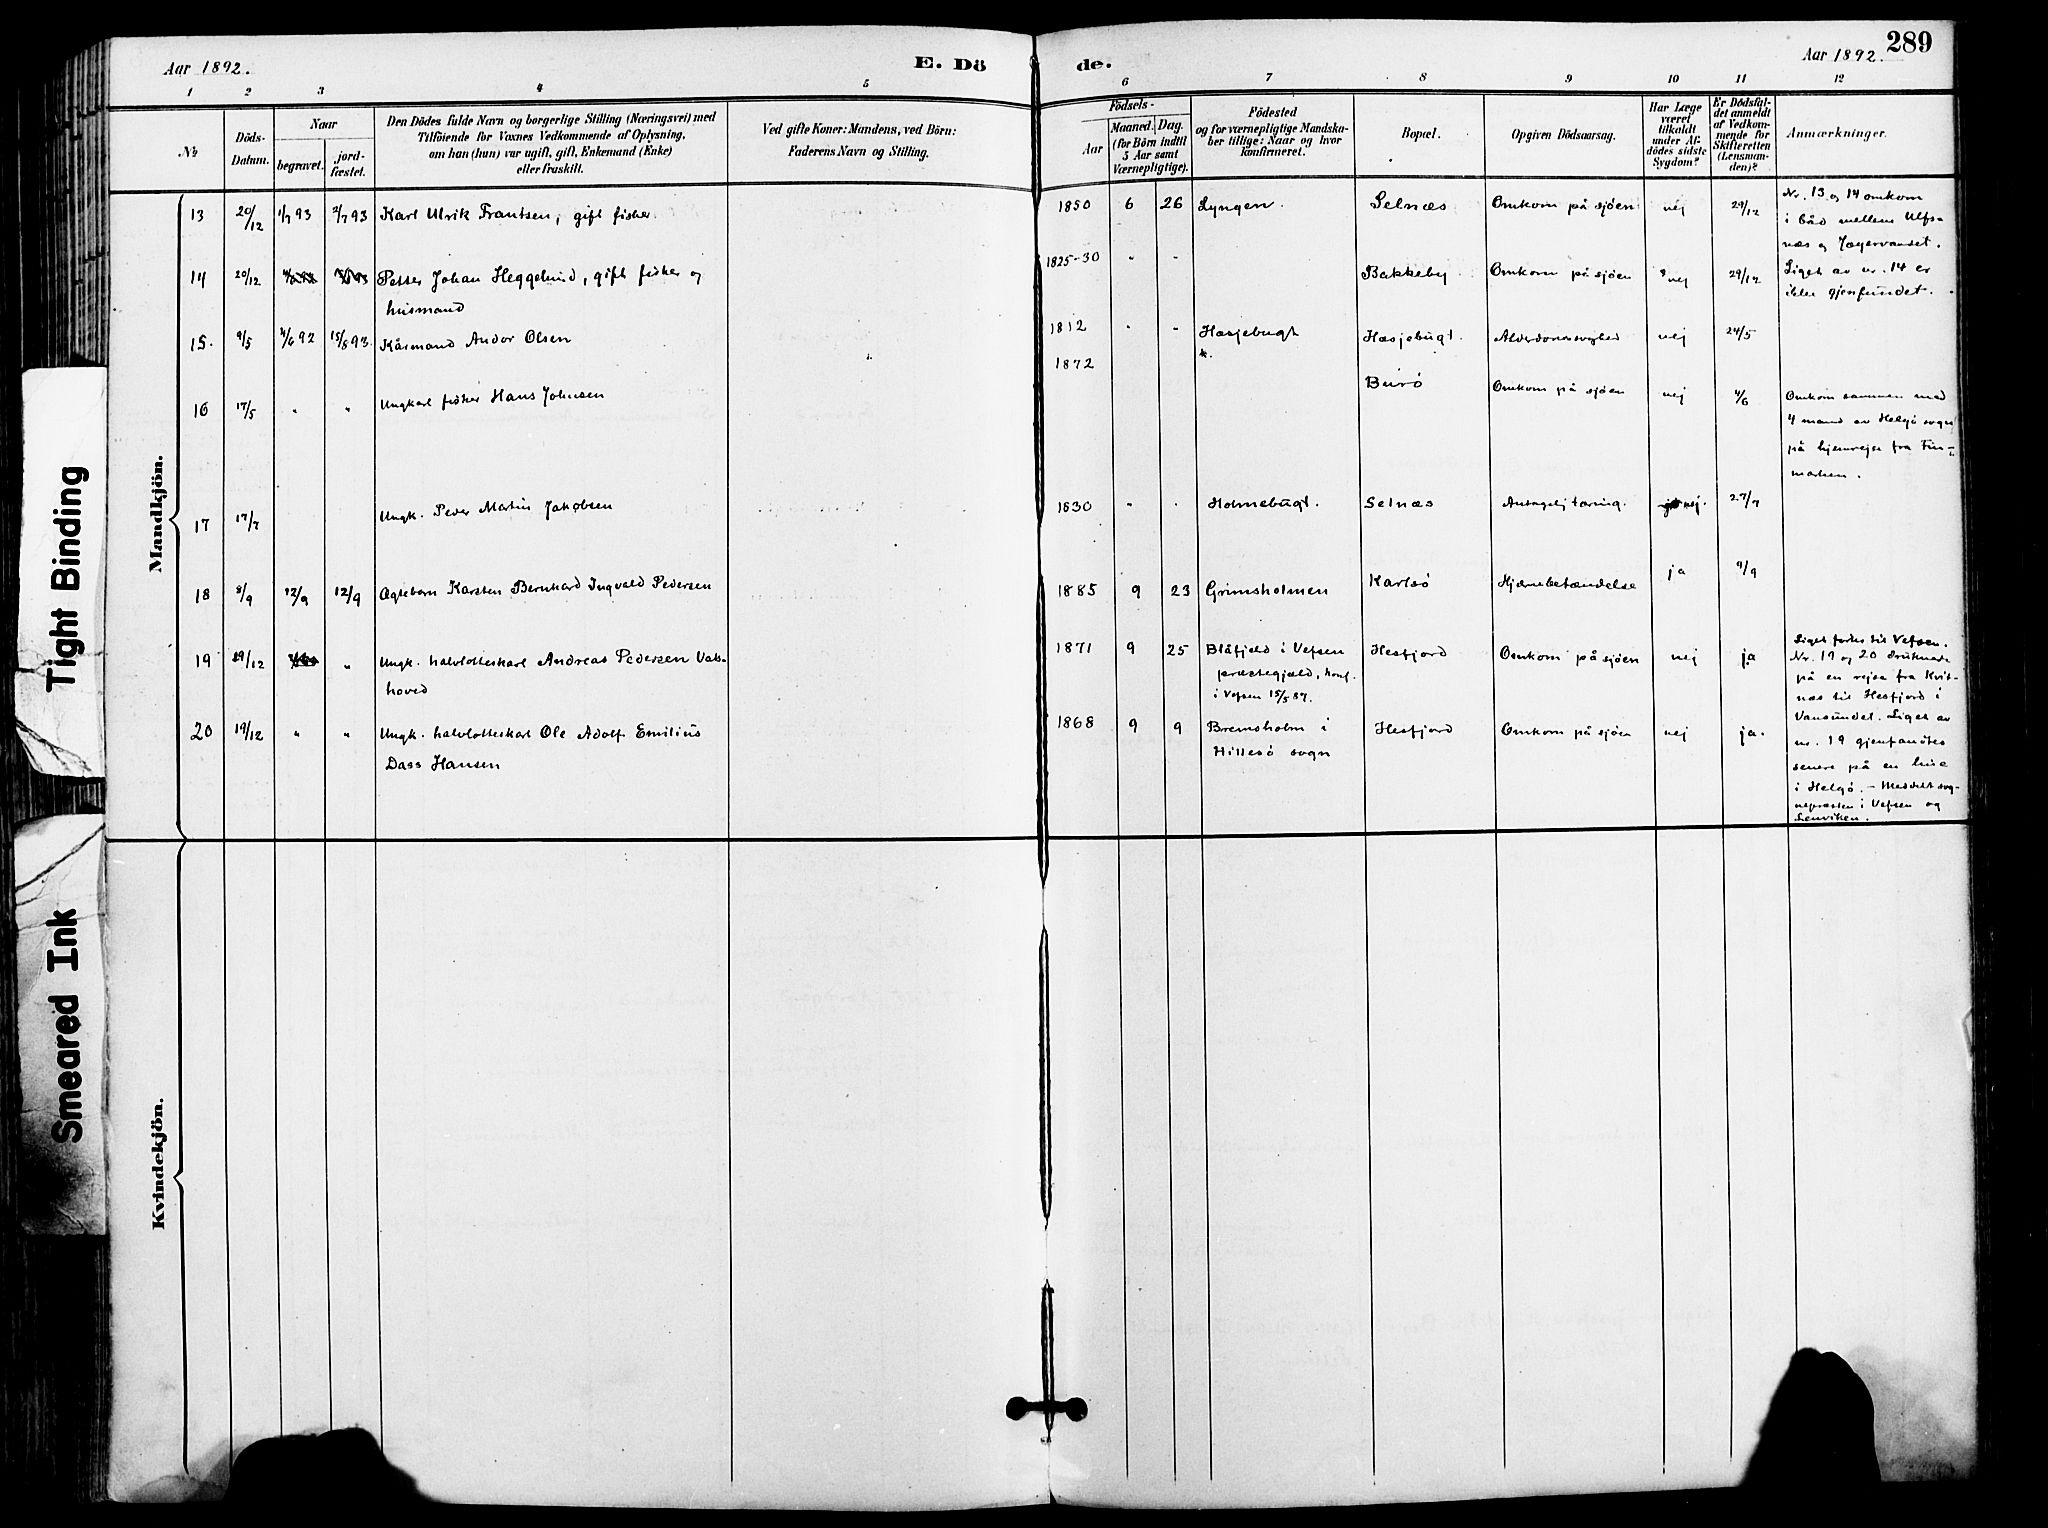 289
Aar 1892.
E. Dö
de.
Aar 1892.
1 2 3 4 5 6 7 8 9 10 11 12
No
Döds-Datum.
Naar
begravet.
jord-fæstet.
Den Dödes fulde Navn og borgerlige Stilling (Næringsvei) med
Tilföiende for Voxnes Vedkommende af Oplysning,
om han (hun) var ugift, gift, Enkemand (Enke)
eller fraskilt.
Ved gifte Koner: Mandens, ved Börn:
Faderens Navn og Stilling.
Födsels-
Aar
Maaned. Dag.
(for Börn indtil
5 Aar samt
Værnepligtige).
Födested
og for værnepligtige Mandska-
ber tillige: Naar og hvor
konfirmeret.
Bopæl.
Opgiven Dödsaarsag.
Har Læge
været
tilkaldt
under Af-
dødes sidste
Sygdom?
Er Dödsfal-
det anmeldt
af Vedkom-
mende for
Skifteretten
(Lensman-
den)?
Anmærkninger.
Mandkjön.
13 20/12 1/7 93 2/7 93 Karl Ulrik Frantsen, gift fisker. 1850 6 26 Lyngen. Selnæs Omkom på sjøen nej 29/12 Nr. 13 og 14 omkom
i båd mellem Ulfs-
næs og Jægervandet.
14 20/12 Petter Johan Heggelund, gift fisker og 1825-30 " " Bakkeby Omkom på sjøen nej 29/12 Liget av nr. 14 er
husmand ikke gjenfundet.
15. 9/5 4/6 92 15/8 93. Kårmand Andor Olsen 1812 " " Hasjebugt Hasjebugt. Alderdomssvaghed nej 24/5
16 17/5 " " Ungkarl fisker Hans Johnsen 1872 Omkom på sjøen nej 4/6 Omkom sammen med
4 mand av Helgø sogn
på hjemrejse fra Fin-
marken.
17 17/7 Ungk. Peder Martin Jakobsen 1830 " " Holmebugt. Selnæs Antagelig tæring. nej. 27/7
18 8/9 12/9 12/9 Ægtebarn Karsten Bernhard Ingvald Pedersen 1885 9 23 Grimsholmen Karlsø Hjærnebetændelse ja 9/9
19 19/12 " Ungk. halvlotteskarl Andreas Pedersen Vals- 1871 9 25 Blåfjeld i Vefsen Hesfjord Omkom på sjøen nej ja
hoved præstegjæld, konf.
i Vefsen 15/5 87.
Liget førtes til Vefsen.
Nr. 19 og 20 druknede
på en rejse fra Kvit-
næs til Hesfjord i
Vansundet. Liget av
nr. 19 gjenfandtes
senere på en
i Helgø. – Meddelt sog-
nepræsten i Vefsen og
Lenviken.
20 19/12 " " Ungk. halvlotteskarl Ole Adolf Emilius 1868 9 9 Bremsholm i Hesfjord Omkom på sjøen nej ja.
Dass Hansen Hillesø sogn
Kvindekjön.
Tight Binding
Smeared Ink